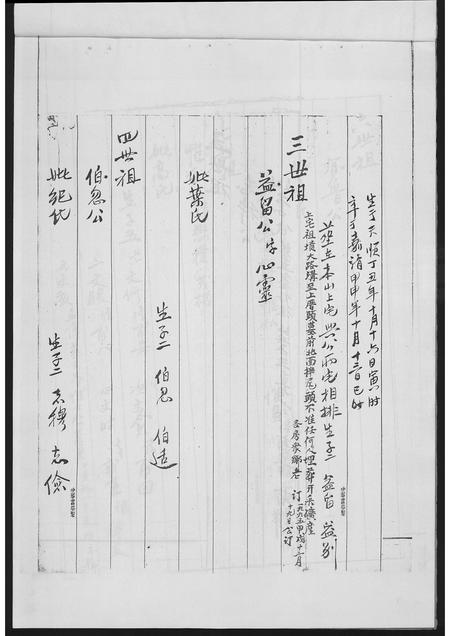 生于天順丁丑年十月十六日寅時
卒于嘉靖甲申年十月十三日巳時
葬在本山上宅與公兩宅相排生子二 益留 益別
三世祖
上宅祖墳大路溝至上厝頭墓前地面押尾頭不准任何人埋葬开采礦產
各房眾鄉老 訂一九九五甲戌十二月
十九日公訂
益留公字心靈
妣葉氏
生子二 伯忽 伯适
四世祖
伯忽公
妣紀氏
生子二 志穆 志儉